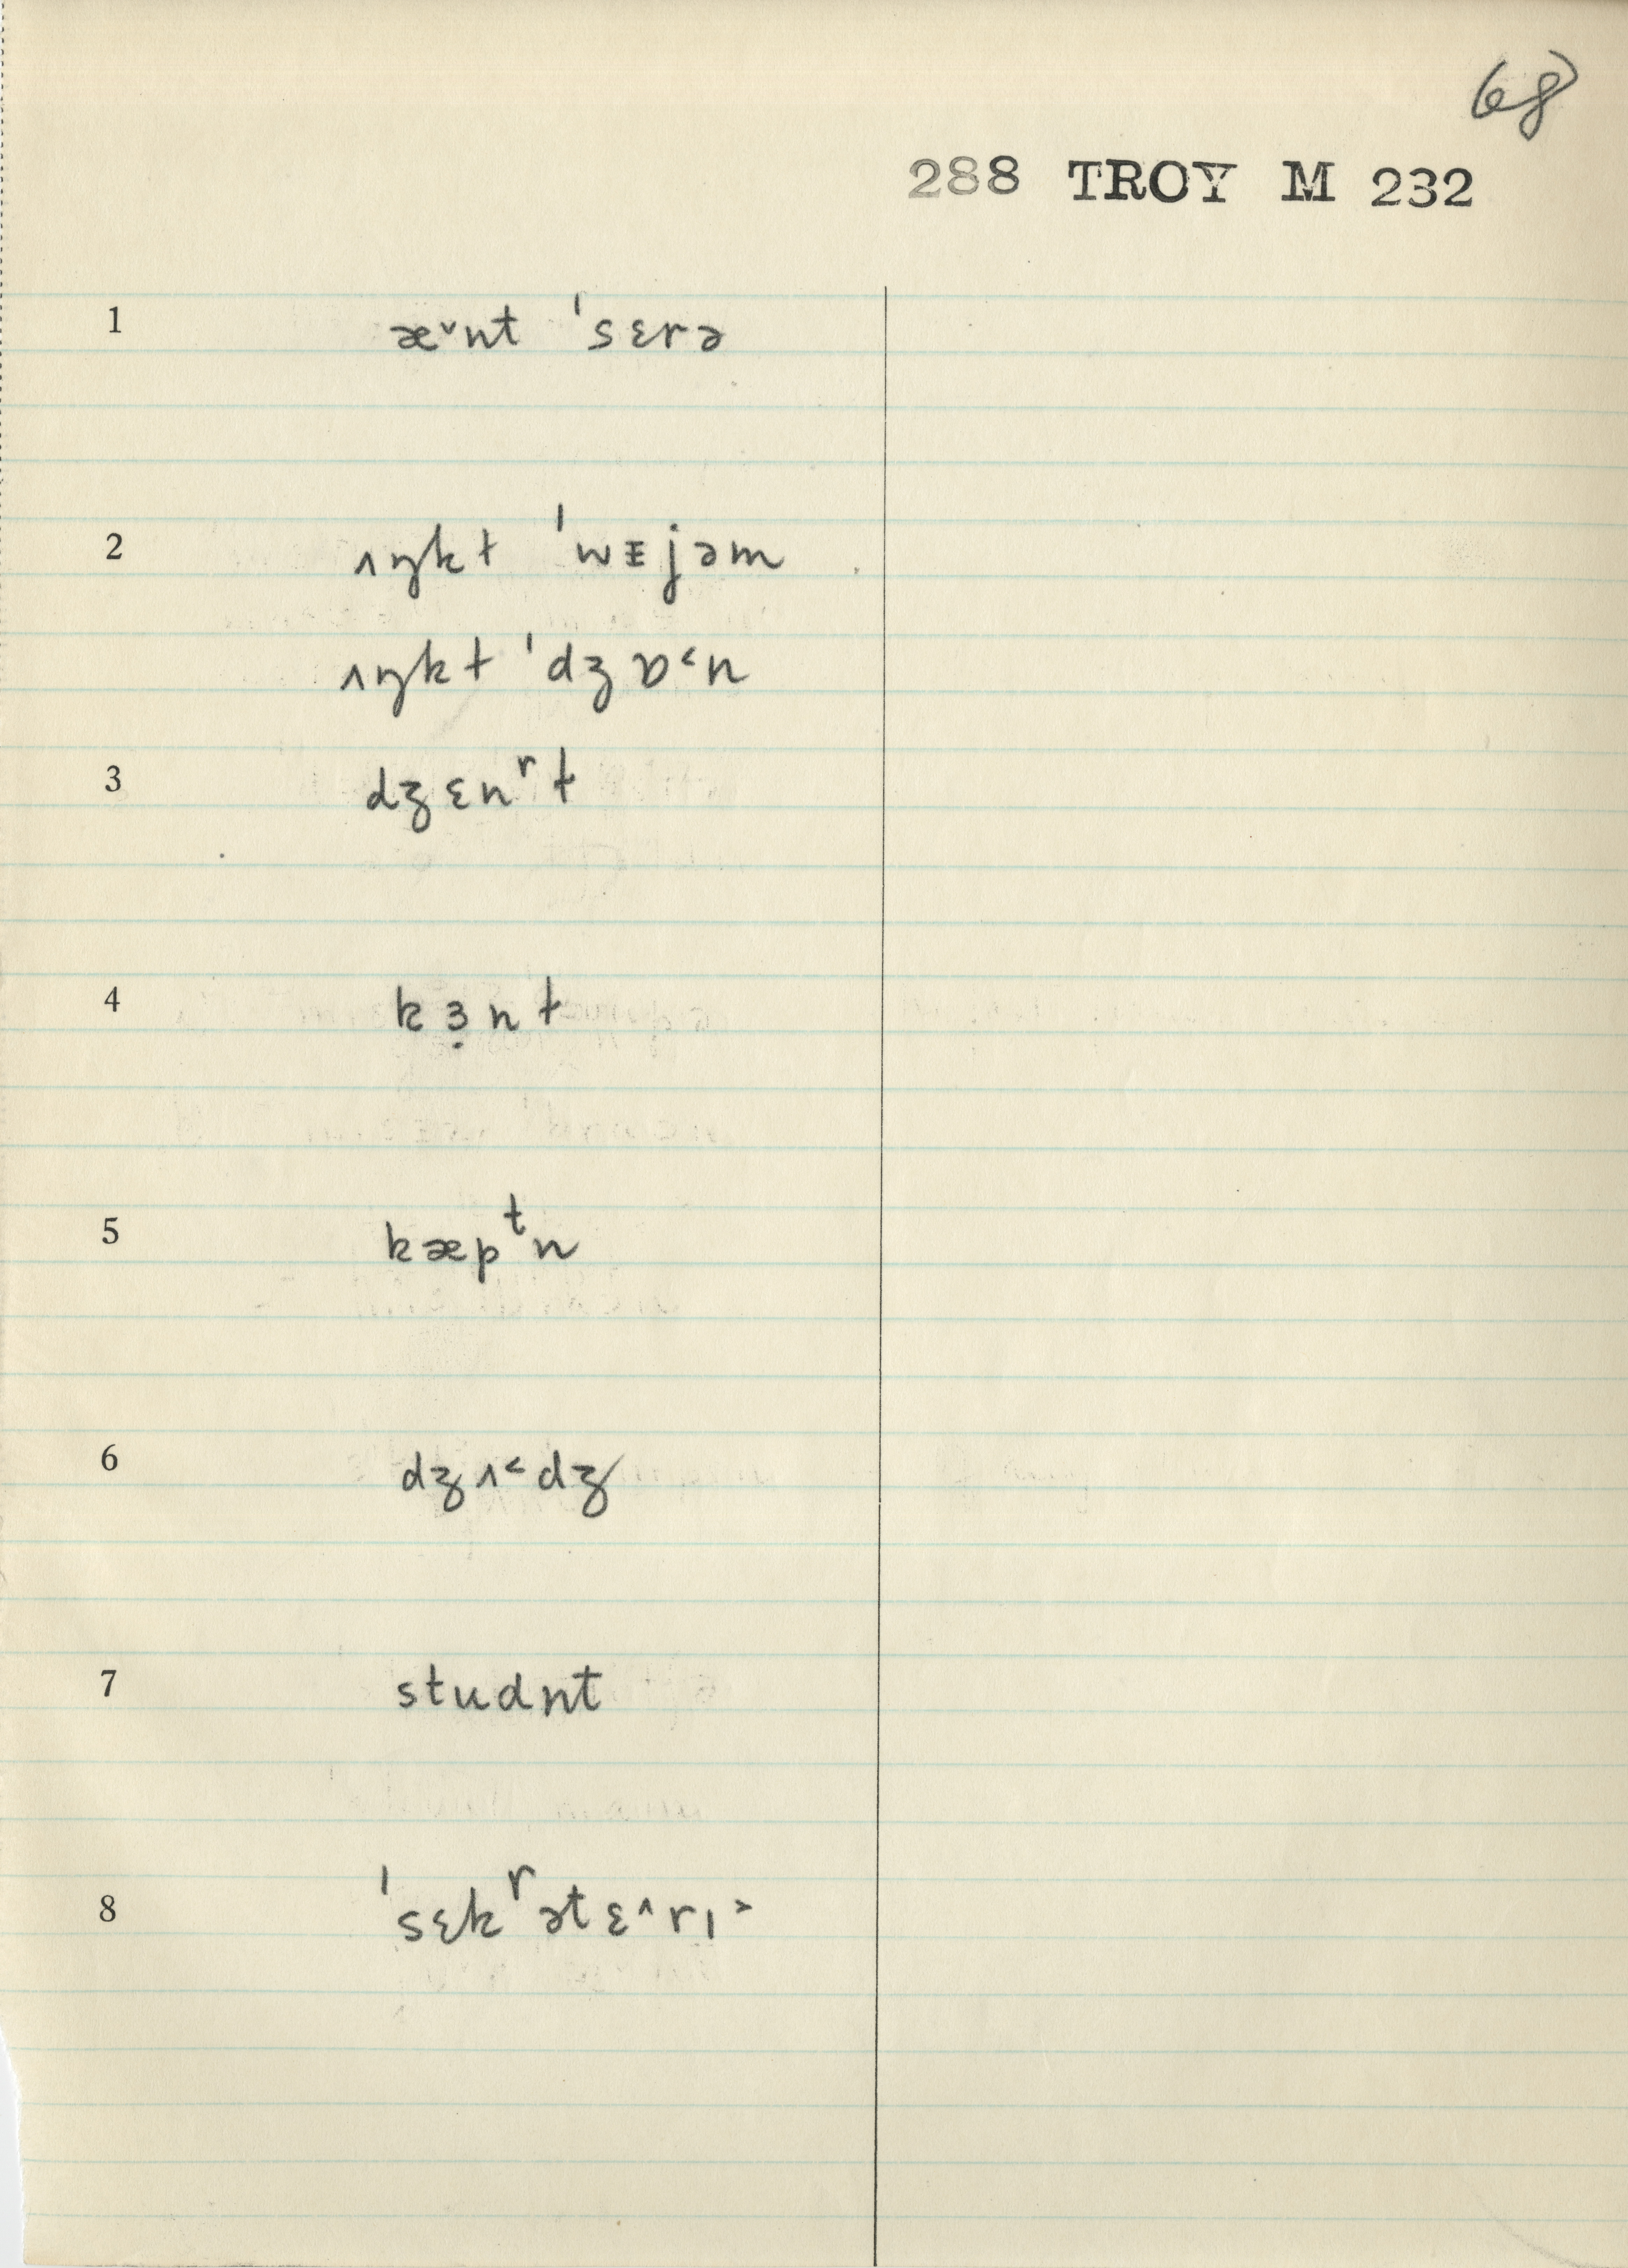 68
288 TROY M 232
1 æ˅nt ˈsɛrə
2 ʌŋkɫ ˈwᵻjəm
ʌŋkɫ ˈdʒɒ˂n
3 dʒɛnʳɫ
4 kɜ̣nɫ
5 kæpᵗn
6 dʒʌ˂dʒ
7 studnt
8 ˈsɛkʳətɛ˄rɪ˃